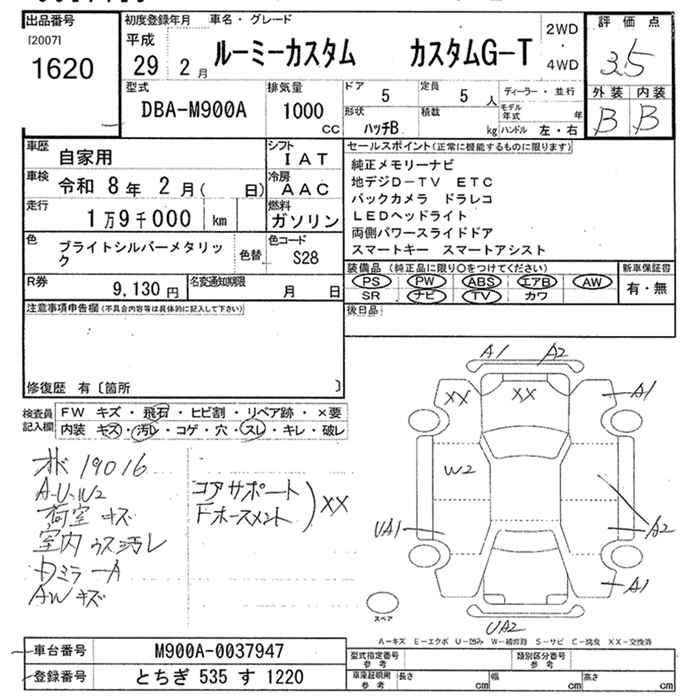 出品番号 初度登録年月 車名・グレード 評価点
[2007] 平成 2WD
1620 29 2月 ルーミーカスタム カスタムG-T ・ 3.5
4WD
型式 排気量 ドア 5 定員 5人 ディーラー・並行 外装 内装
DBA-M900A 1000 cc 形状 ハッチB 積載 kg モデル年式 年 B B
ハンドル 左・右
車歴 自家用 シフト IAT セールスポイント(正常に機能するものに限ります)
車検 令和 8年 2月( 日) 冷房 AAC 純正メモリーナビ
地デジD-TV ETC
走行 1万9千000 km 燃料 ガソリン バックカメラ ドラレコ
LEDヘッドライト
色 ブライトシルバーメタリック 色替 色コード S28 両側パワースライドドア
スマートキー スマートアシスト
R券 9,130円 名変通知期限 月 日 装備品(純正品に限り○をつけてください) 新車保証書
PS PW ABS エアB AW 有・無
SR ナビ TV カワ
注意事項申告欄(不具合内容等は具体的に記入して下さい) 後日品
修復歴 有〔箇所 〕
検査員記入欄 FW キズ・飛石・ヒビ割・リペア跡・×要
内装 キズ・汚レ・コゲ・穴・スレ・キレ・破レ
A1 A2
XX XX A1
W2
UA1 A2
A1
UA2
スペア
19016
A-U-W2
荷室 キズ
室内 ウス汚レ
AWキズ
コアサポート
Fホースメント
XX
A-キズ E-エクボ U-凹み W-補修跡 S-サビ C-腐食 XX-交換済
車台番号 M900A-0037947 型式指定番号 参考 類別区分番号 参考
登録番号 とちぎ 535 す 1220 車庫証明用 参考 長さ cm 幅 cm 高さ cm